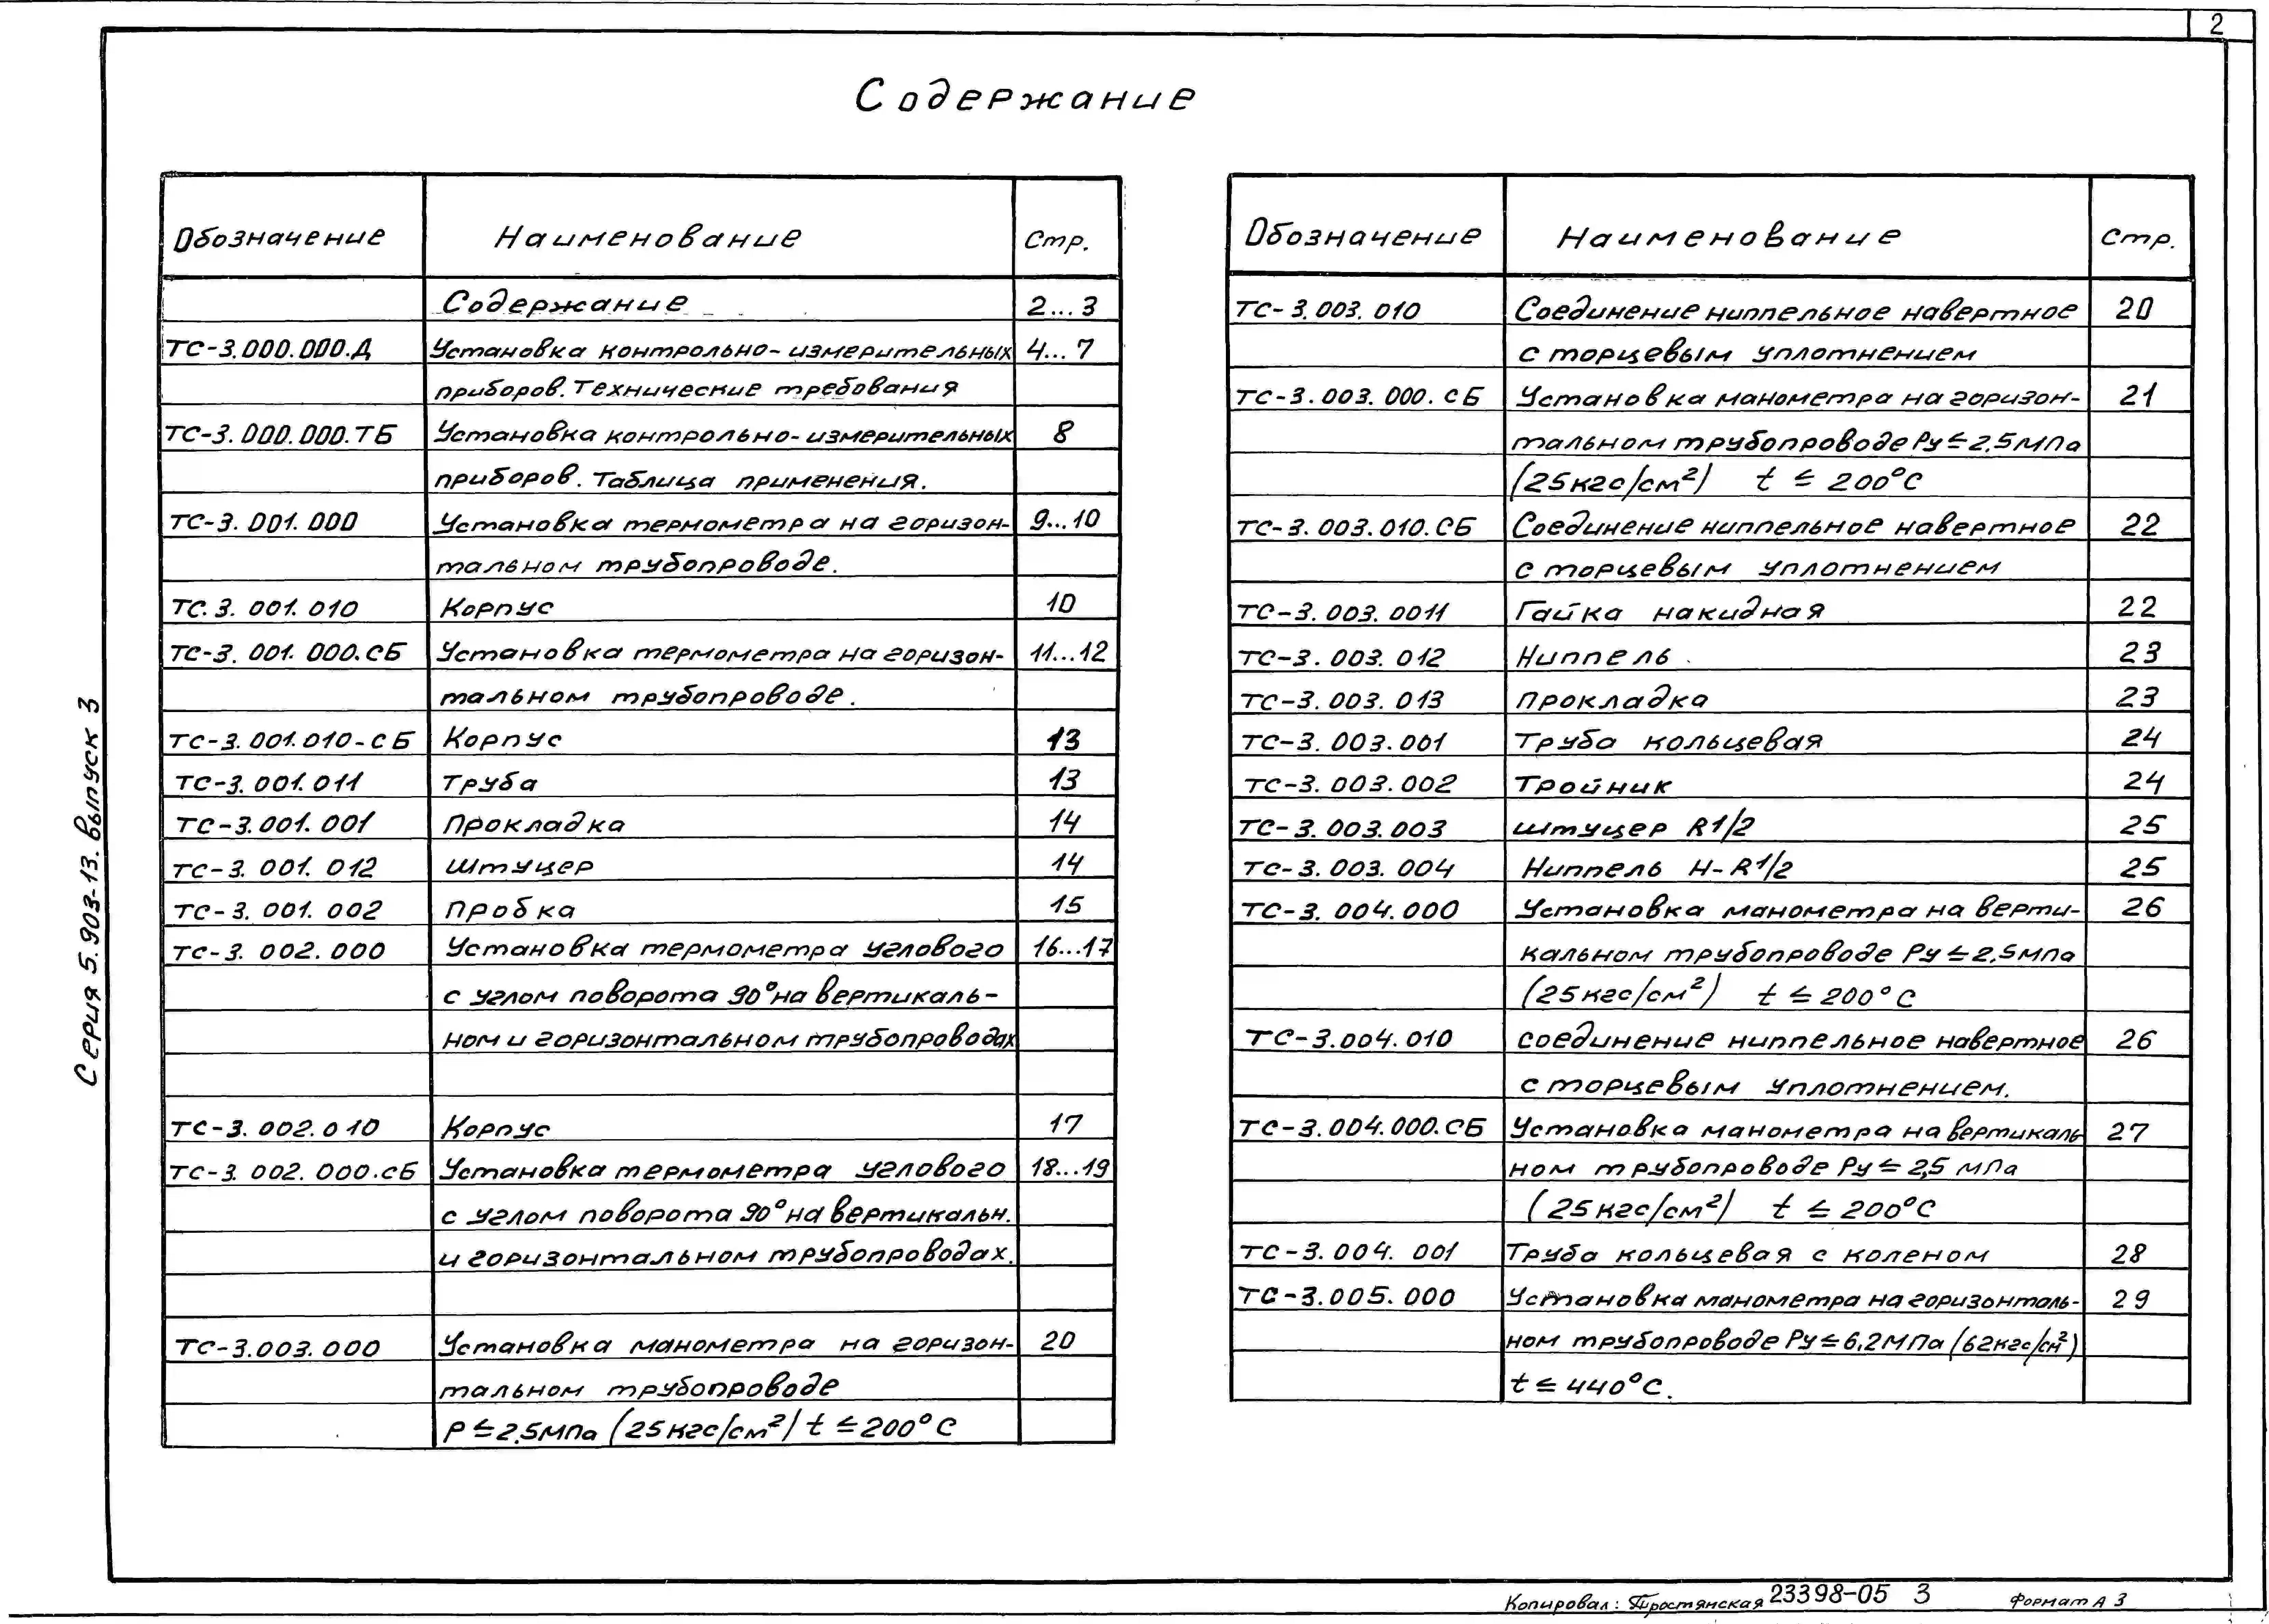 2
Содержание
Обозначение Наименование Стр.
Содержание 2...3
ТС-3.000.000.Д Установка контрольно-измерительных 4...7
приборов. Технические требования
ТС-3.000.000.ТБ Установка контрольно-измерительных 8
приборов. Таблица применения.
ТС-3.001.000 Установка термометра на горизон- 9...10
тальном трубопроводе.
ТС.3.001.010 Корпус 10
ТС-3.001.000.СБ Установка термометра на горизон- 11...12
тальном трубопроводе.
ТС-3.001.010-СБ Корпус 13
ТС-3.001.011 Труба 13
ТС-3.001.001 Прокладка 14
ТС-3.001.012 Штуцер 14
ТС-3.001.002 Пробка 15
ТС-3.002.000 Установка термометра углового 16...17
с углом поворота 90° на вертикаль-
ном и горизонтальном трубопроводах
ТС-3.002.010 Корпус 17
ТС-3.002.000.СБ Установка термометра углового 18...19
с углом поворота 90° на вертикальн.
и горизонтальном трубопроводах.
ТС-3.003.000 Установка манометра на горизон- 20
тальном трубопроводе
Р ≤ 2,5МПа (25кгс/см²) t ≤ 200°С
Обозначение Наименование Стр.
ТС-3.003.010 Соединение ниппельное навертное 20
с торцевым уплотнением
ТС-3.003.000.СБ Установка манометра на горизон- 21
тальном трубопроводе Ру ≤ 2,5МПа
(25кгс/см²) t ≤ 200°С
ТС-3.003.010.СБ Соединение ниппельное навертное 22
с торцевым уплотнением
ТС-3.003.0011 Гайка накидная 22
ТС-3.003.012 Ниппель 23
ТС-3.003.013 Прокладка 23
ТС-3.003.001 Труба кольцевая 24
ТС-3.003.002 Тройник 24
ТС-3.003.003 Штуцер R1/2 25
ТС-3.003.004 Ниппель Н-R1/2 25
ТС-3.004.000 Установка манометра на верти- 26
кальном трубопроводе Ру ≤ 2,5МПа
(25кгс/см²) t ≤ 200°С
ТС-3.004.010 соединение ниппельное навертное 26
с торцевым уплотнением.
ТС-3.004.000.СБ Установка манометра на вертикаль 27
ном трубопроводе Ру ≤ 2,5 МПа
(25кгс/см²) t ≤ 200°С
ТС-3.004.001 Труба кольцевая с коленом 28
ТС-3.005.000 Установка манометра на горизонталь- 29
ном трубопроводе Ру ≤ 6,2МПа (62кгс/см²)
t ≤ 440°С.
Серия 5.903-13. выпуск 3
Копировал: Простянская 23398-05 3 Формат А 3